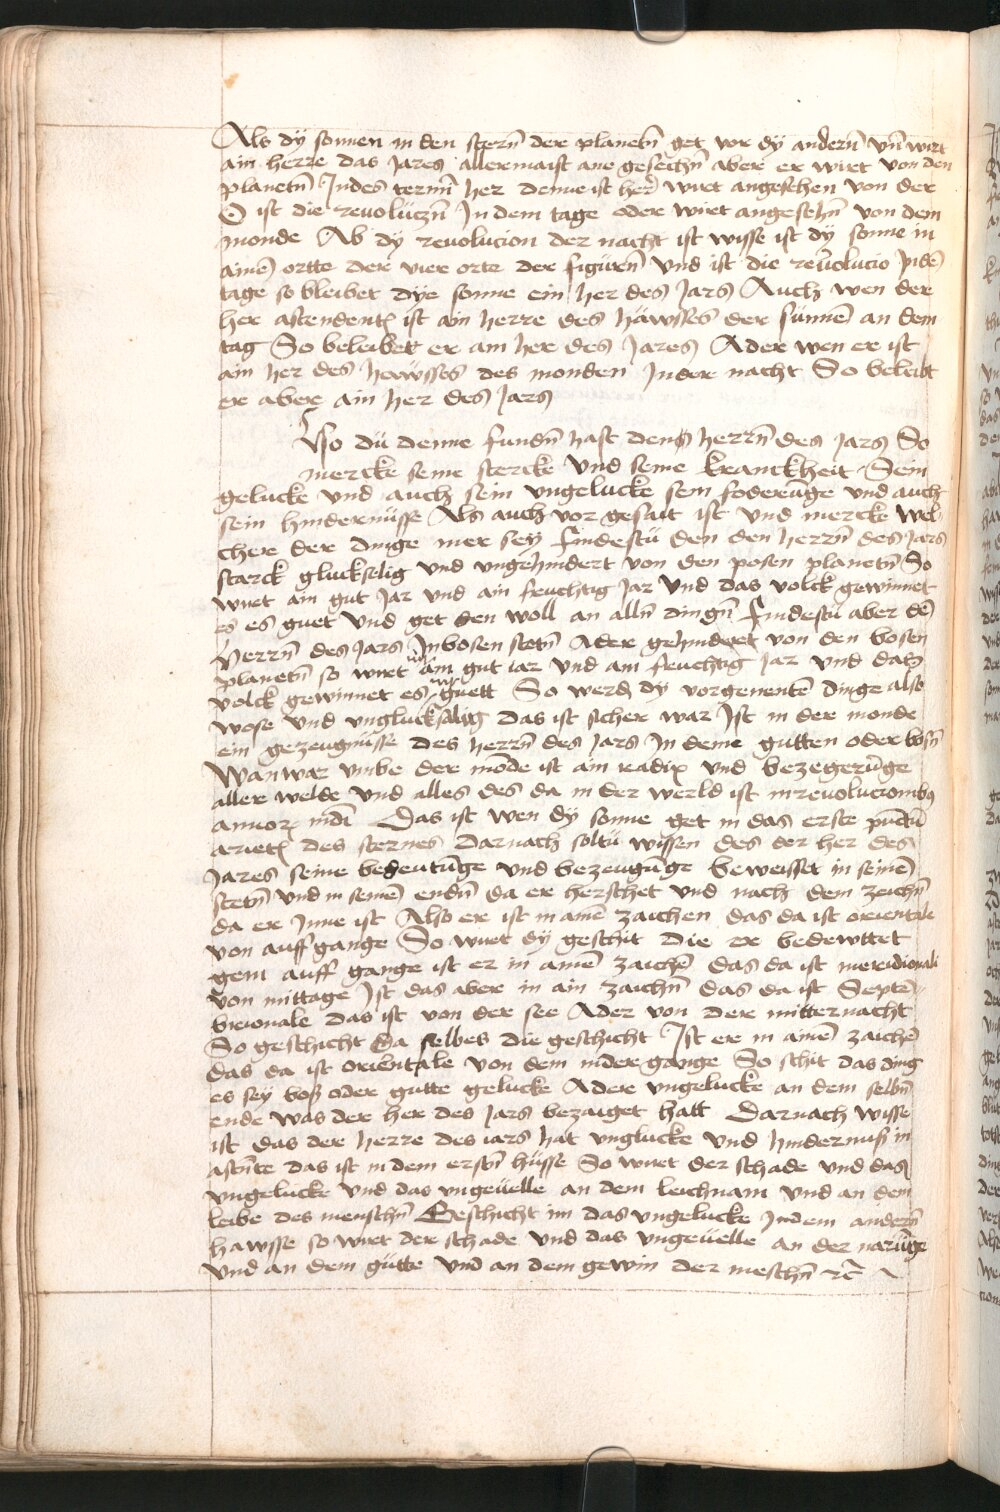 Als dÿ sonnen in den stern̄ dere planetn̄ get vor dÿ andern̄ vn̄ wirt
ain herre das Jares allermaist ane gesechn̄ abere er wirt von den
planetn̄ Indes termin̄ her denne ist her wirt angesehen von der
☉ ist die revoluczn̄ In dem tage oder wirt angesehn̄ von dem
monde Ab dÿ revolucion der nacht ist wisse ist dÿ sonne in
ainē ortte der vier orte der figurn̄ vnd ist die revolucio Indē
tage so bleibet dÿe sonne ein her des Jars Auch wen der
her ascendentꝭ ist ain herre des häwsses der sunnē an dem
tag So beleibet er am her des Jares Ader wen er ist
ain her des hawsses des monden In der nacht So beleibt
er abere ain her des Jars
So dü denne fundn̄ hast dens herrn̄ des Jars So
mercke seine stercke vnd seine kranckheit Sein
gelucke vnd auch sein vngelucke sein foderūge vnd auch
sein hindernüsse Als auch vor gesait ist vnd mercke wel
cher der dinge mer seÿ findestu den den herrn̄ des Jars
starck gluckselig vnd vngehindert von den posen planetn̄ So
wirt ain gut Jar vnd ain feuchtig Jar vnd das volck gewinnet
es es guet vnd get den woll an alln̄ dingn̄ findestu aber dē
herrn̄ des Jars Inbosen stetn̄ Ader gehinderet von den bosen
planetn̄ so wirt nit ain gut iar vnd ain feuchtig Jar vnd das
volck gewinnet es nit guett So werdꝫ dÿ vorgenentē dinge also
wose vnd vnglucksalig das ist sicher war Ist in der monde
ein gezeugnüsse des herrn̄ des Jars In deme gutten oder bosn̄
Wanwar vmbe der mōde ist ain radix vnd bezegerūge
aller welde vnd alles des da in der werld ist in revolucionibꝯ
annoꝝ mdi Das ist wen dÿ sonne get in das erste punctū
arietꝭ des sternes Darnach soltu wissen des der her des
Jares seine bedeutūge vnd bezeugūge beweisset in seinē
stetn̄ vnd in seinē endn̄ da er herschet vnd nach dem zeichn̄
da er Inne ist Also er ist in ainē zaichen das da ist orientale
von auff gange So wirt dÿ geschit die er bedewttet
gein auff gange ist er in ainē zaichē das da ist meridionali
von mittage Ist das aber in ain zaichn̄ das da ist Septē
trionale das ist von der see Ader von dere mitternacht
So geschicht da selbes die geschicht Ist ere in ainē zaichē
das da ist orientale von dem nidere gange So schit das ding
es sey bosz oder gutte gelucke Adere vngelucke an dem selbn̄
ende was der her des Jars bezaiget hatt Darnach wisse
ist das dere herre des iars hat vnglucke vnd hindernusz in
ascn̄te das ist in dem erstn̄ hüsse So wirt der schade vnd das
vngelucke vnd das vngeuelle an dem leichnam vnd an dem
leibe des menschn̄ Geschicht im das vngelucke In dem andern̄
hawsse so wirt der schade vnd das vngeuelle an der narūge
vnd an dem gütte vnd an dem gewin der meschn̄ ꝛc̄